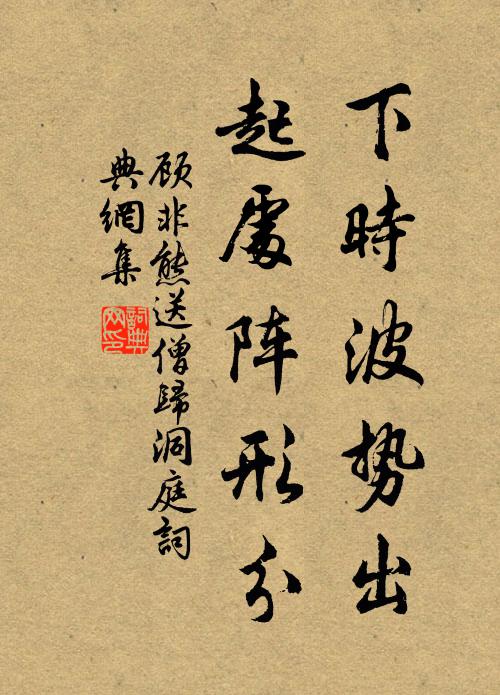 下時波势出
起處阵形分
顾非熊送僧歸洞庭詞
典網集
詞典网印